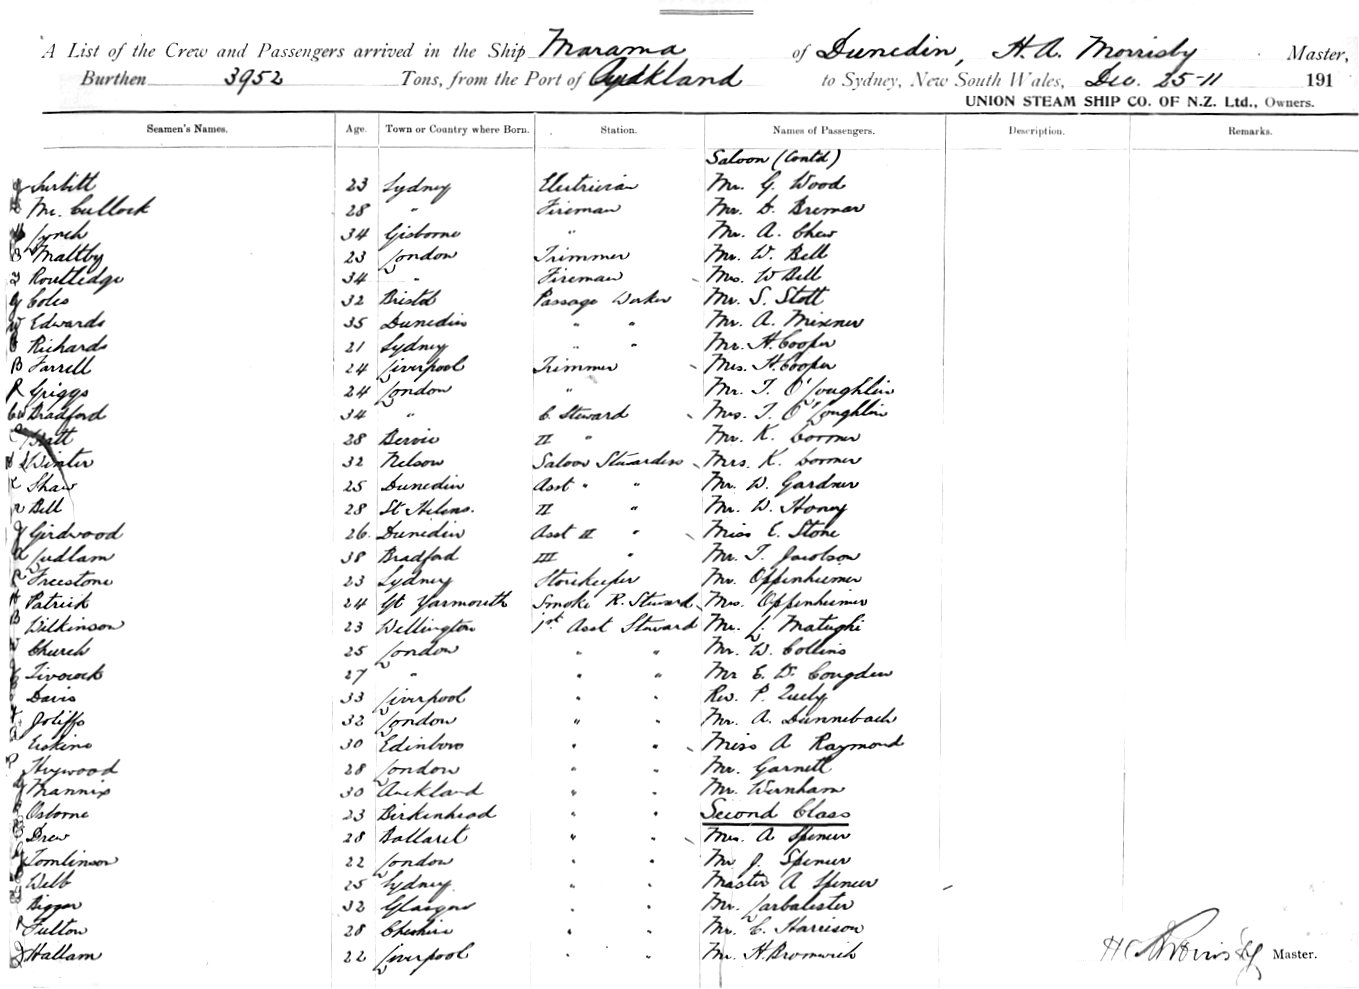 A List of the Crew and Passengers arrived in the Ship Marama of Dunedin, H. A. Morrisby Master,
Burthen 3952 Tons, from the Port of Auckland to Sydney, New South Wales, Dec. 25-11 191
UNION STEAM SHIP CO. OF N.Z. Ltd., Owners.
Seamen's Names. Age. Town or Country where Born. Station. Names of Passengers. Description. Remarks.
Saloon (Contd)
23 Sydney Electrician Mr. G. Wood
Mc. Cullock 28 " Fireman Mr. D. Bremar
Lynch 34 Gisborne " Mr. A. Chew
B Maltby 23 London Trimmer Mr. W. Bell
Routledge 34 " Fireman Mrs. W Bell
Coles 32 Bristol Passage Worker Mr. S. Stott
W Edwards 35 Dunedin " " Mr. A. Mixner
Richards 21 Sydney " " Mr. H. Cooper
B Farrell 24 Liverpool Trimmer Mrs. H. Cooper
R Griggs 24 London " Mr. T. O'Loughlin
Bradford 34 " C. Steward Mrs. T. O'Loughlin
28 II " Mr. K.
Winter 32 Nelson Saloon Stewardess Mrs. K.
Shaw 25 Dunedin Asst " " Mr. W. Gardner
Bell 28 St Helens. II " Mr. W. Honey
Girdwood 26. Dunedin Asst II " Miss E. Stone
Ludlam 38 Bradford III " Mr. T. Jacobson
Freestone 23 Sydney Storekeeper Mr. Oppenheimer
Patrick 24 Gt Yarmouth Smoke R. Steward Mrs. Oppenheimer
B Wilkinson 23 Wellington 1st Asst Steward Mr. L. Matughi
Church 25 London " " Mr. W. Collins
27 " " " Mr E. D. Congdon
Davis 33 Liverpool " " Rev. P.
Joliffe 32 London " " Mr. A. Dunnebach
Erskine 30 Edinboro " " Miss A Raymond
Heywood 28 London " " Mr. Garnett
Mannix 30 Auckland " " Mr. Wernham
Osborne 23 Birkenhead " " Second Class
Drew 28 Ballarat " " Mrs. A Spencer
Tomlinson 22 London " " Mr J. Spencer
Webb 25 Sydney " " Master A Spencer
Bigger 32 Glasgow " " Mr. Larbalester
Fulton 28 Cheshire " " Mr. C. Harrison
Hallam 22 Liverpool " " Mr. H. Bromwich
H A Morrisby Master.